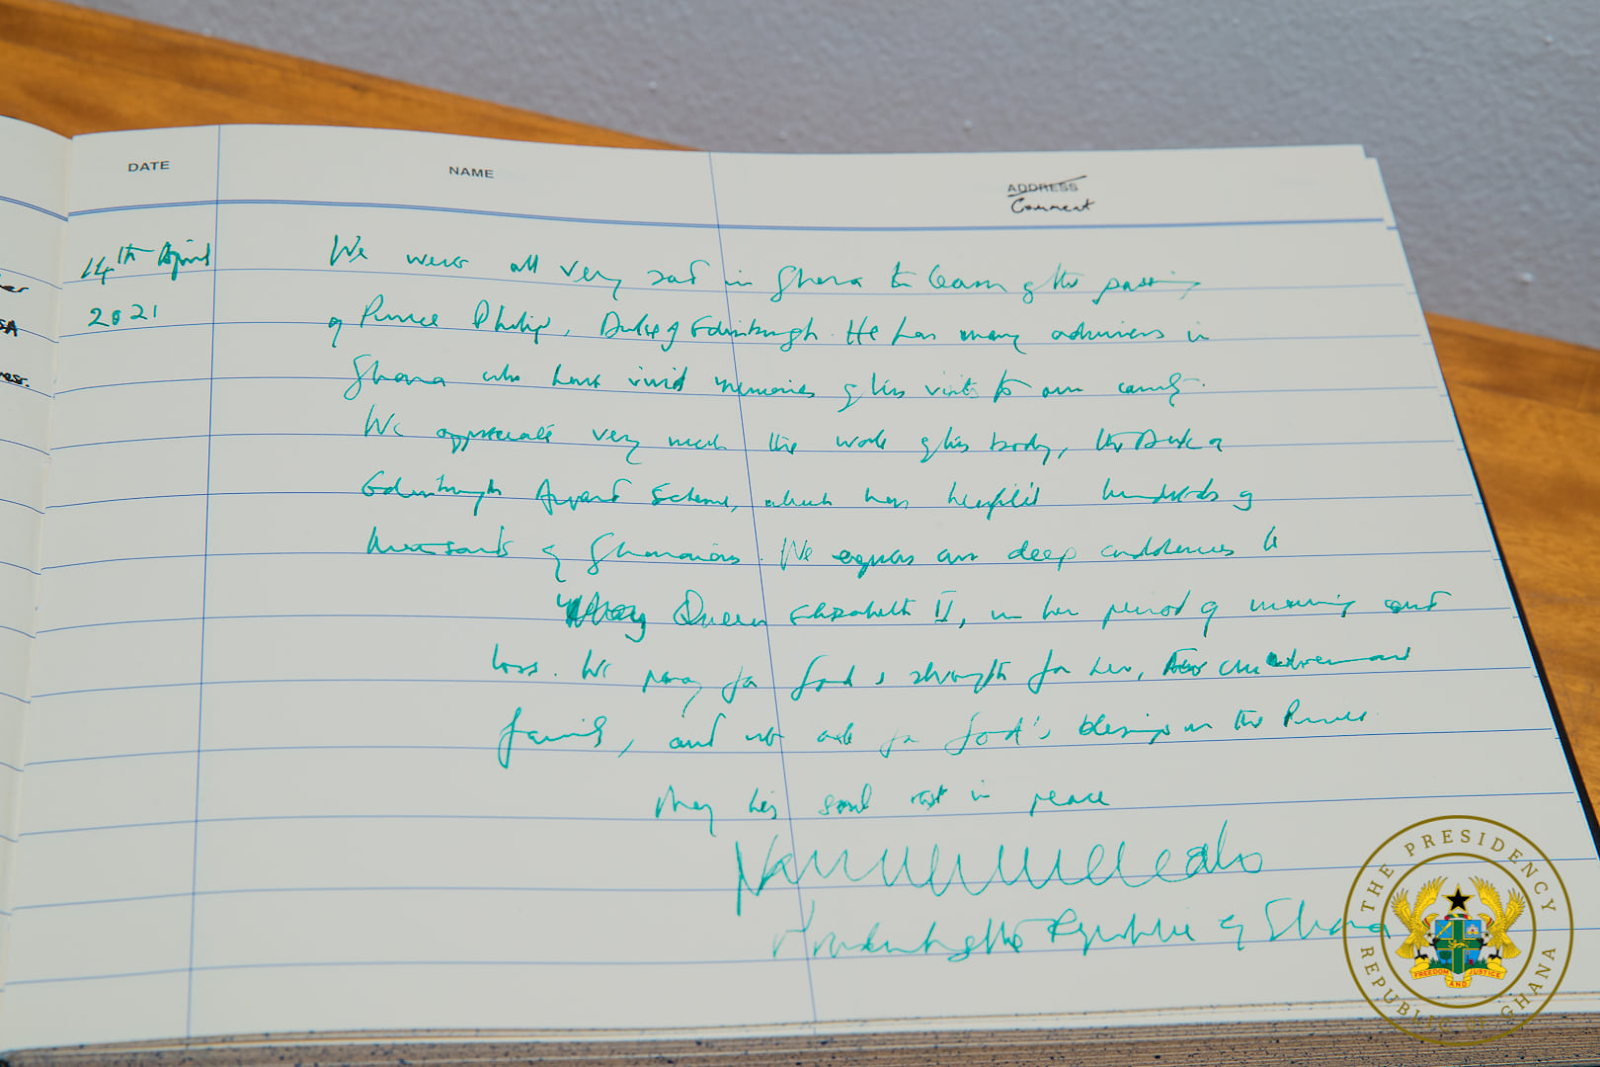 DATE NAME ADDRESS
Comment
14th April
2021
We were all very sad in Ghana to learn of the passing
of Prince Philip, Duke of Edinburgh. He has many admirers in
Ghana who have vivid memories of his visits to our country.
We appreciate very much the work of his body, the Duke of
Edinburgh Award Scheme, which has benefited hundreds of
thousands of Ghanaians. We express our deep condolences to
Queen Elizabeth II, in her period of mourning and
loss. We pray for God's strength for her, her children and
family, and we ask for God's blessings on the Prince.
May his soul rest in peace
President of the Republic of Ghana
THE PRESIDENCY
REPUBLIC OF GHANA
FREEDOM AND JUSTICE
er
SA
ess.